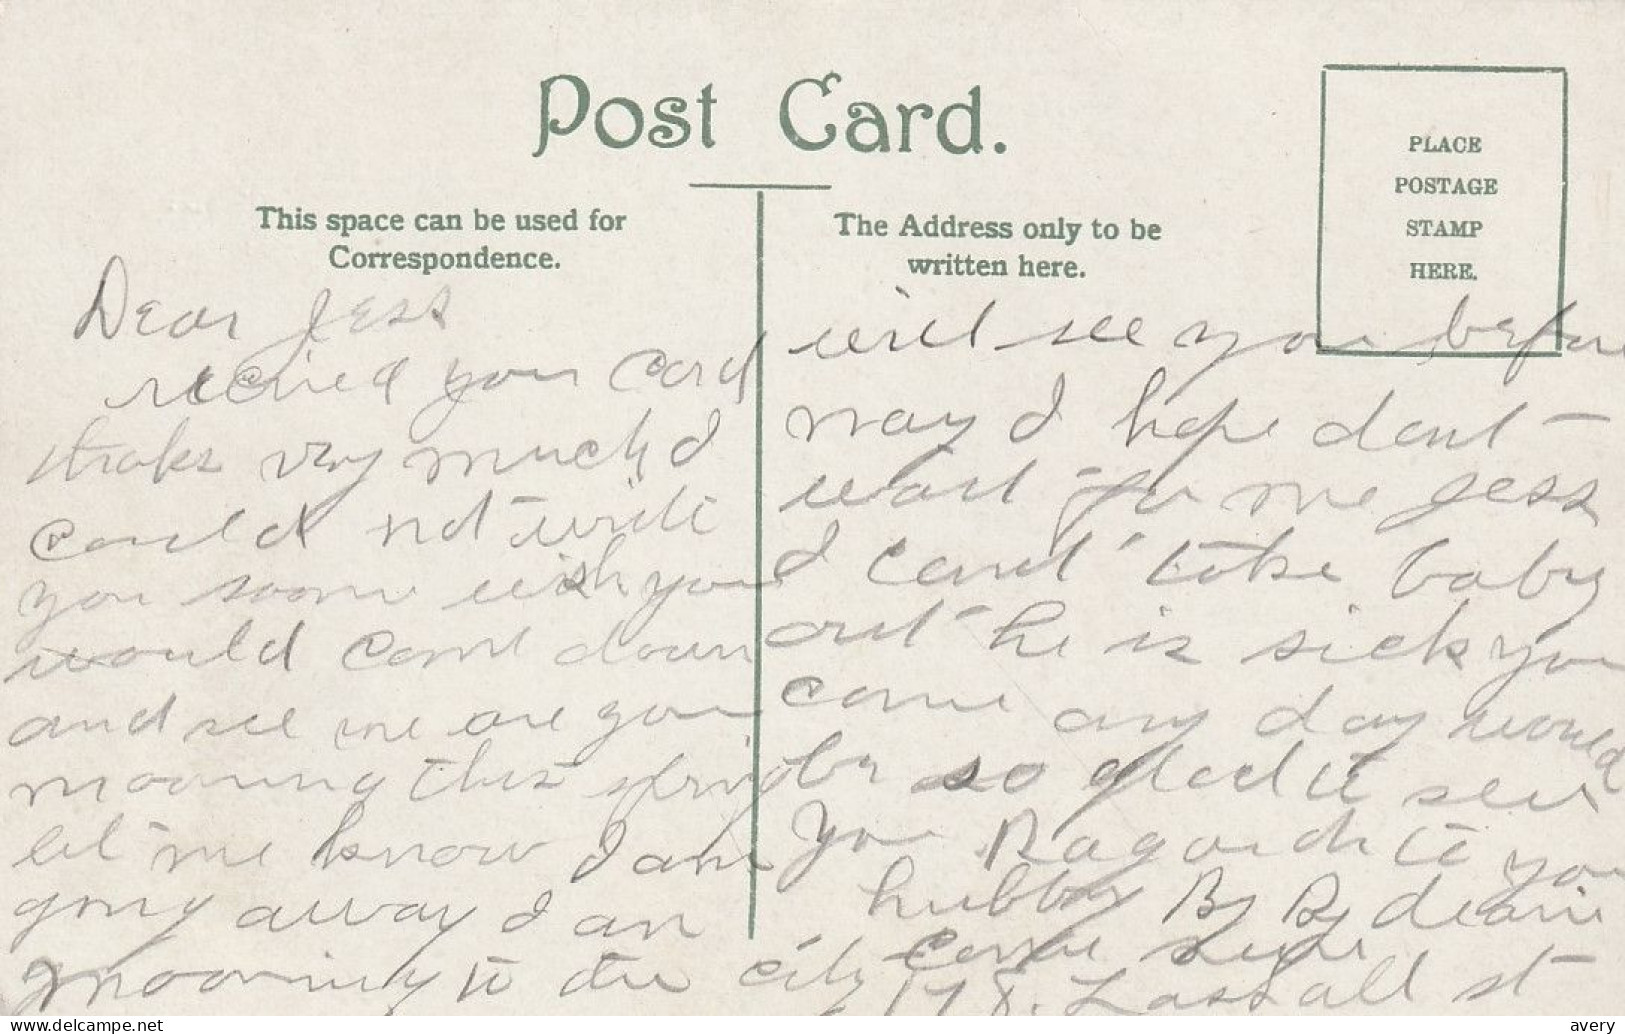 Post Card.
This space can be used for
Correspondence.
The Address only to be
written here.
PLACE
POSTAGE
STAMP
HERE.
Dear Jess
recived your card
thaks very much I
could not write
you soone wish you
would come down
and see me are you
mooving this spring
let me know I am
going away I am
mooving to the city
will see you before
may I hope dont
wait for me Jess
I cant take baby
out he is sick you
come any day would
be so glad to see
you Ragards to you
hubby By By dearie
come sure
178. st
delcampe.net
avery